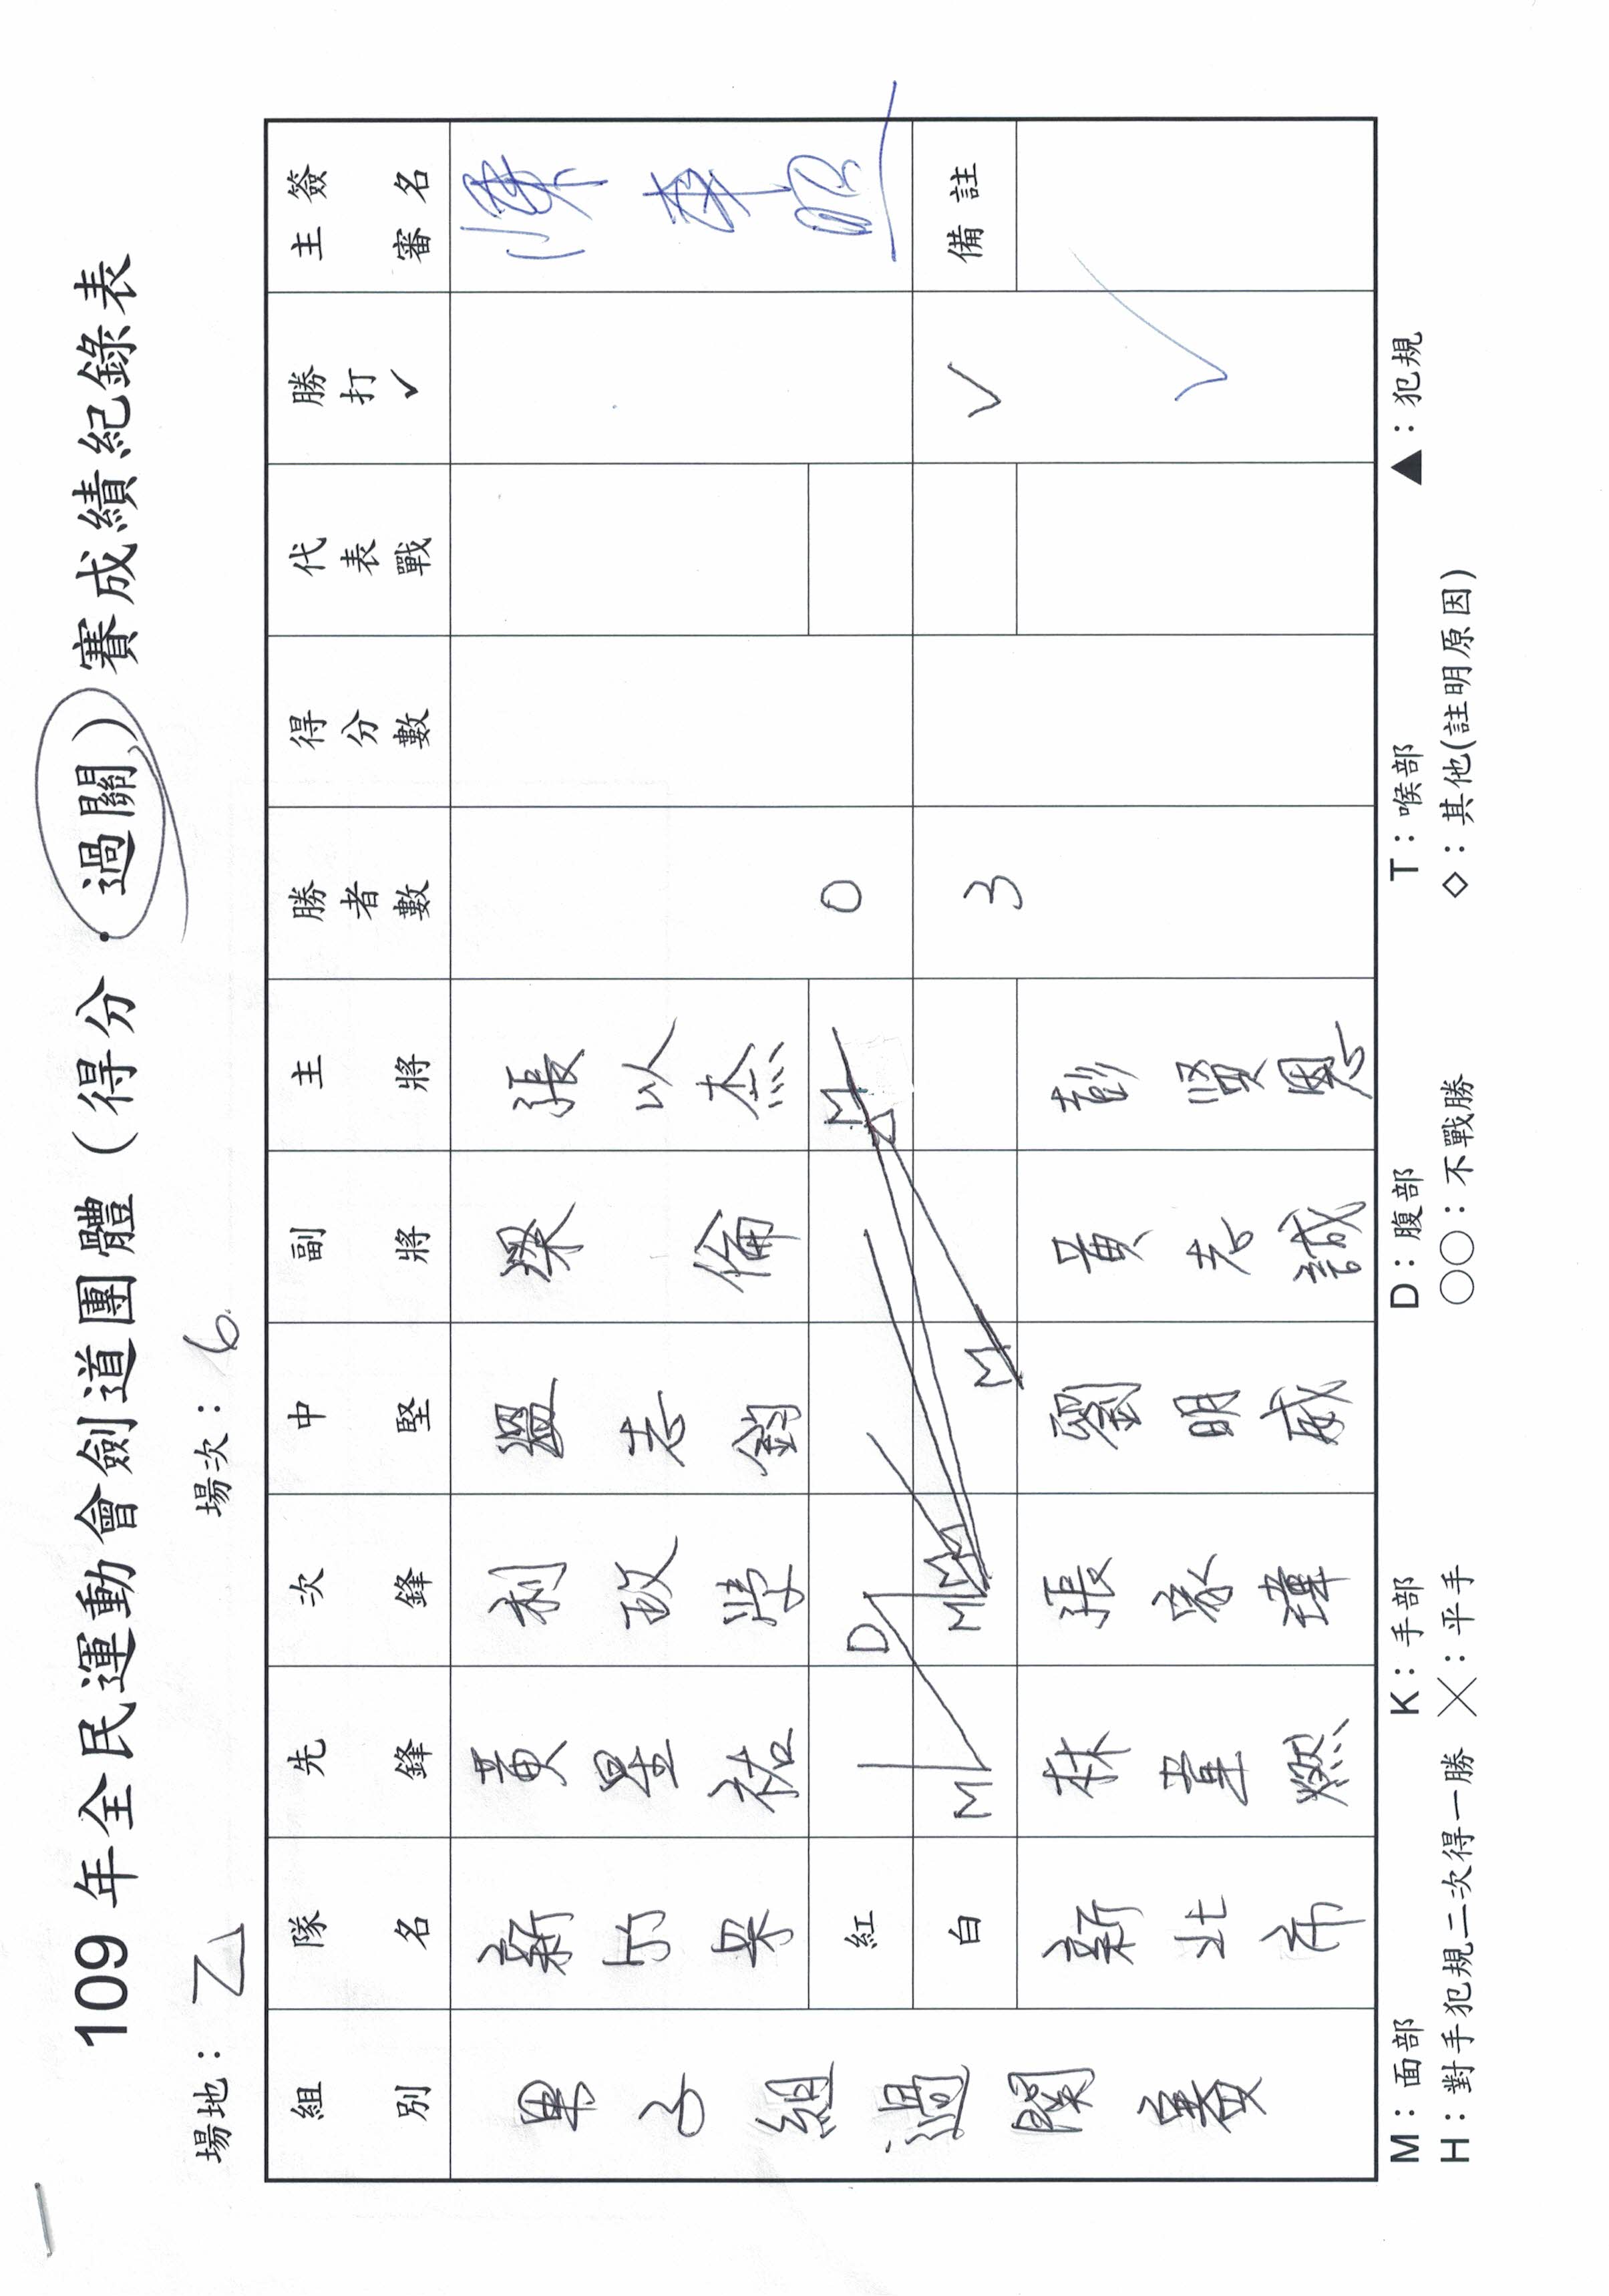 109 年全民運動會劍道團體（得分．過關）賽成績紀錄表
場地：乙 場次：6
組別 隊名 先鋒 次鋒 中堅 副將 主將 勝者數 得分數 代表戰 勝打✓ 主審簽名
男子組過關賽 新竹縣 黃星祐 利政學 溫志鈞 梁倫 張以杰
紅 D M 0
白 M M M M M 3 ✓ 備註
新北市 林韋燃 張家瑋 劉明威 黃志誠 彭賢恩
M：面部 K：手部 D：腹部 T：喉部 ▲：犯規
H：對手犯規二次得一勝 ╳：平手 ○○：不戰勝 ◇：其他(註明原因)